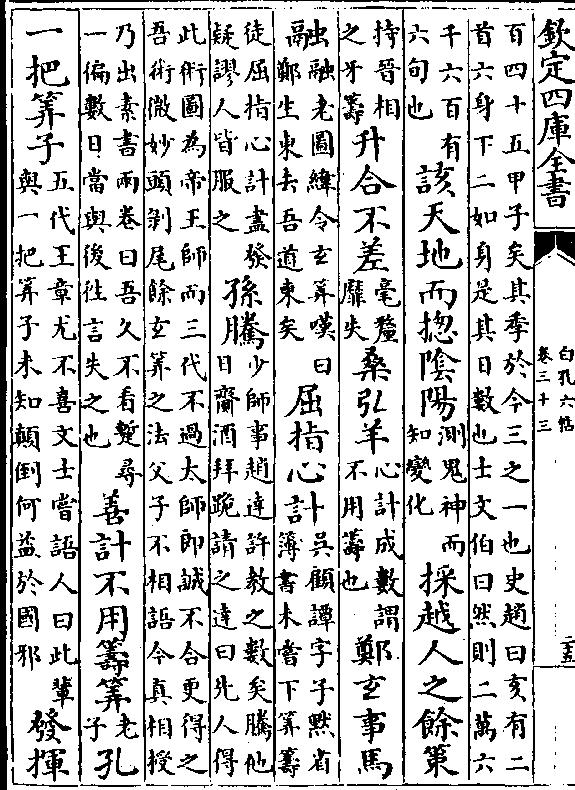 欽定四庫全書
白孔六帖
卷三十三
百四十五甲子矣其季於今三之一也史趙曰亥有二
首六身下二如身是其日數也士文伯曰然則二萬六
千六百有
六句也
該天地而揔陰陽
測鬼神而
知變化
採越人之餘策
持晉相
之牙籌
升合不差
毫釐
靡失
桑弘羊
心計成數謂
不用籌也
鄭玄事馬
融
融老圖緯令玄筭嘆曰
鄭生東去吾道東矣
屈指心計
吳顧譚字子黙省
簿書未嘗下筭籌
徒屈指心計盡發
疑謬人皆服之
孫騰
少師事趙達許教之數矣騰他
日齎酒拜跪請之達曰先人得
此術圖為帝王師而三代不過太師郎誠不合更得之
吾術微妙頭剝尾餘玄筭之法父子不相語今真相授
乃出素書兩卷曰吾久不看蹔尋
一偏數日當與後往言失之也
善計不用籌筭
老
子
孔
一把筭子
五代王章尤不喜文士嘗語人曰此輩
與一把筭子未知顛倒何益於國邪
發揮